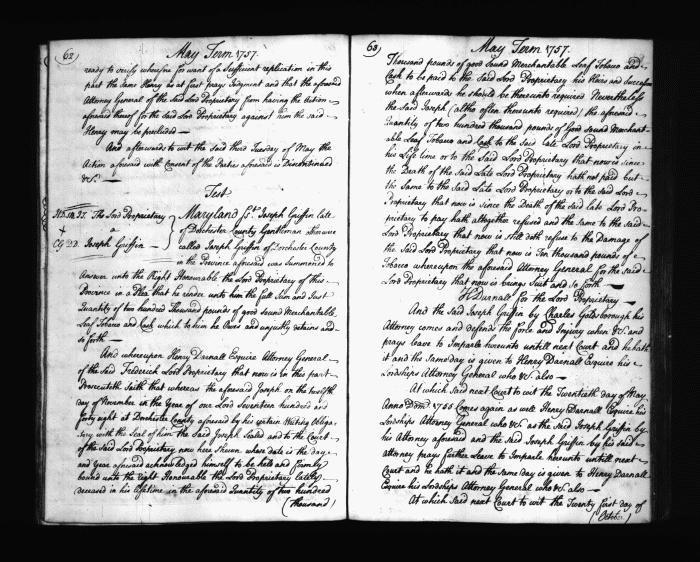 62
May Term 1757.
ready to verify wherefore for want of a Sufficient replication in this
part the Same Henry as at first prays Judgment and that the aforesaid
Attorney General of the Said Lord Proprietary from having the Action
aforesaid thereof for the Said Lord Proprietary against him the said
Henry may be precluded —
And afterwards to wit the said third Tuesday of May the
Action aforesaid with Consent of the Parties aforesaid is Discontinued
&c. —
Test
The Lord Proprietary
a
Joseph Griffin —
Maryland Sst. Joseph Griffin late
of Dorchester County Gentleman otherwise
called Joseph Griffin of Dorchester County
in the Province aforesaid was Summoned to
Answer unto the Right Honourable the Lord Proprietary of this
Province in a Plea that he render unto him the full Sum and Just
Quantity of two hundred Thousand pounds of good sound Merchantable
Leaf Tobacco and Cask which to him he Owes and unjustly detains and
so forth —
And whereupon Henry Darnall Esquire Attorney General
of the said Frederick Lord Proprietary that now is in this part
Prosecuteth Saith that whereas the aforesaid Joseph on the twelfth
day of November in the Year of our Lord Seventeen hundred and
forty eight at Dorchester County aforesaid by his certain Writing Obliga-
tory with the Seal of him the Said Joseph Sealed and to the Court
of the Said Lord Proprietary now here Shewn whose date is the day
and Year aforesaid acknowledged himself to be held and firmly
bound unto the Right Honourable the Lord Proprietary lately
deceased in his lifetime in the aforesaid Quantity of two hundred
(Thousand)
63
May Term 1757.
Thousand pounds of good Sound Merchantable Leaf Tobacco and
Cask to be paid to the Said Lord Proprietary his Heirs and Successors
when afterwards he should be thereunto required Nevertheless
the said Joseph (altho often thereunto required) the aforesaid
Quantity of two hundred thousand pounds of Good Sound Merchant
able Leaf Tobacco and Cask to the Said late Lord Proprietary in
his Life time or to the Said Lord Proprietary that now is since
the Death of the Said Late Lord Proprietary hath not paid but
the Same to the Said Late Lord Proprietary or to the said Lord
Proprietary that now is Since the Death of the said late Lord Pro-
prietary to pay hath altogether refused and the same to the Said
Lord Proprietary that now is still doth refuse to the Damage of
the Said Lord Proprietary that now is Ten thousand pounds of
Tobacco whereupon the aforesaid Attorney General for the Said
Lord Proprietary that now is brings Suit and So forth —
H. Darnall for the Lord Proprietary —
And the said Joseph Griffin by Charles Goldsborough his
Attorney comes and defends the force and Injury when &c. and
prays leave to Imparle hereunto untill next Court and he hath
it and the Same day is given to Henry Darnall Esquire his
Lordships Attorney General who &c. also —
At which Said next Court to wit the Twentieth day of May
Anno Dom: 1755 Comes again as well Henry Darnall Esquire his
Lordships Attorney General who &c. as the Said Joseph Griffin by
his Attorney aforesaid and the Said Joseph Griffin by his Said
attorney pray further Leave to Imparle hereunto untill next
Court and he hath it and the Same day is given to Henry Darnall
Esquire his Lordships Attorney General who &c. also —
At which Said next Court to wit the Twenty first day of
(October)